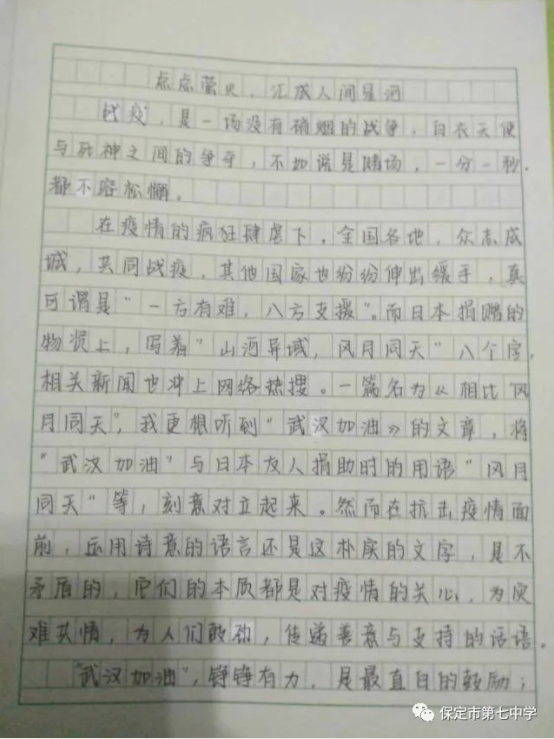 点点萤火，汇成人间星河
战疫，是一场没有硝烟的战争，白衣天使
与死神之间的争夺，不如说是赌场，一分一秒，
都不容松懈。
在疫情的疯狂肆虐下，全国各地，众志成
城，共同战疫，其他国家也纷纷伸出缓手，真
可谓是“一方有难，八方支援”。而日本捐赠的
物资上，写着“山河异域，风月同天”八个字，
相关新闻也冲上网络热搜。一篇名为《相比“风
月同天”，我更想听到“武汉加油》的文章，将
“武汉加油”与日本友人捐助时的用语“风月
同天”等，刻意对立起来。然而在抗击疫情面
前，运用诗意的语言还是这朴实的文字，是不
矛盾的，它们的本质都是对疫情的关心，为灾
难共情，为人们鼓劲，传递善意与支持的话语。
“武汉加油”，铮铮有力，是最直白的鼓励；
保定市第七中学